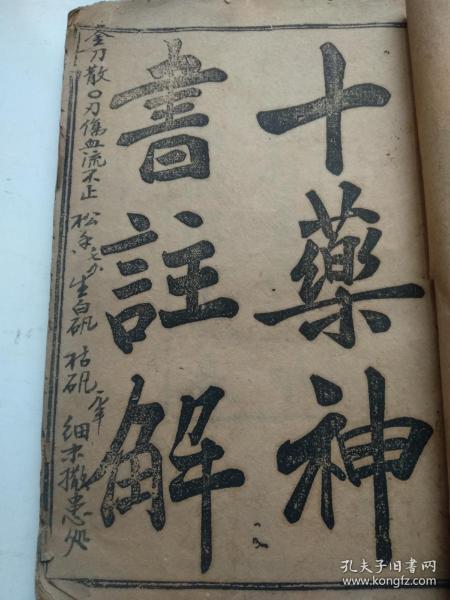 十藥神
書註解
金刀散〇刀傷血流不止 松香七分 生白矾 枯矾 細末撒患处
孔夫子旧书网
www.kongfz.com